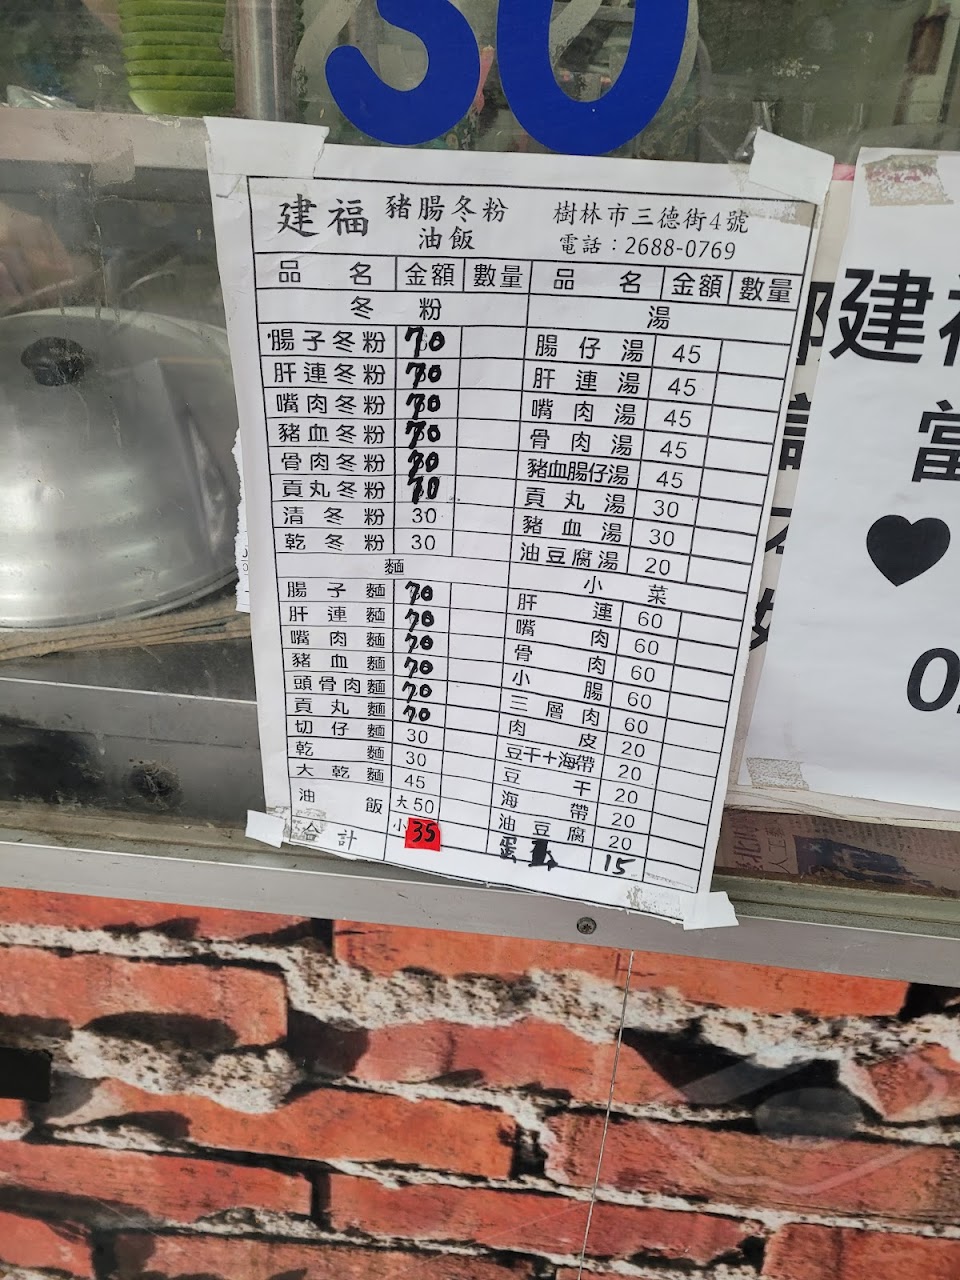 30
建福 豬腸冬粉 油飯
樹林市三德街4號
電話：2688-0769
品名 金額 數量 品名 金額 數量
冬粉
腸子冬粉 70
肝連冬粉 70
嘴肉冬粉 70
豬血冬粉 70
骨肉冬粉 70
貢丸冬粉 70
清冬粉 30
乾冬粉 30
麵
腸子麵 70
肝連麵 70
嘴肉麵 70
豬血麵 70
頭骨肉麵 70
貢丸麵 70
切仔麵 30
乾麵 30
大乾麵 45
油飯 大50
小35
合計
湯
腸仔湯 45
肝連湯 45
嘴肉湯 45
骨肉湯 45
豬血腸仔湯 45
貢丸湯 30
豬血湯 30
油豆腐湯 20
小菜
肝連 60
嘴肉 60
骨肉 60
小腸 60
三層肉 60
肉皮 20
豆干+海帶 20
豆干 20
海帶 20
油豆腐 20
蛋 15
建